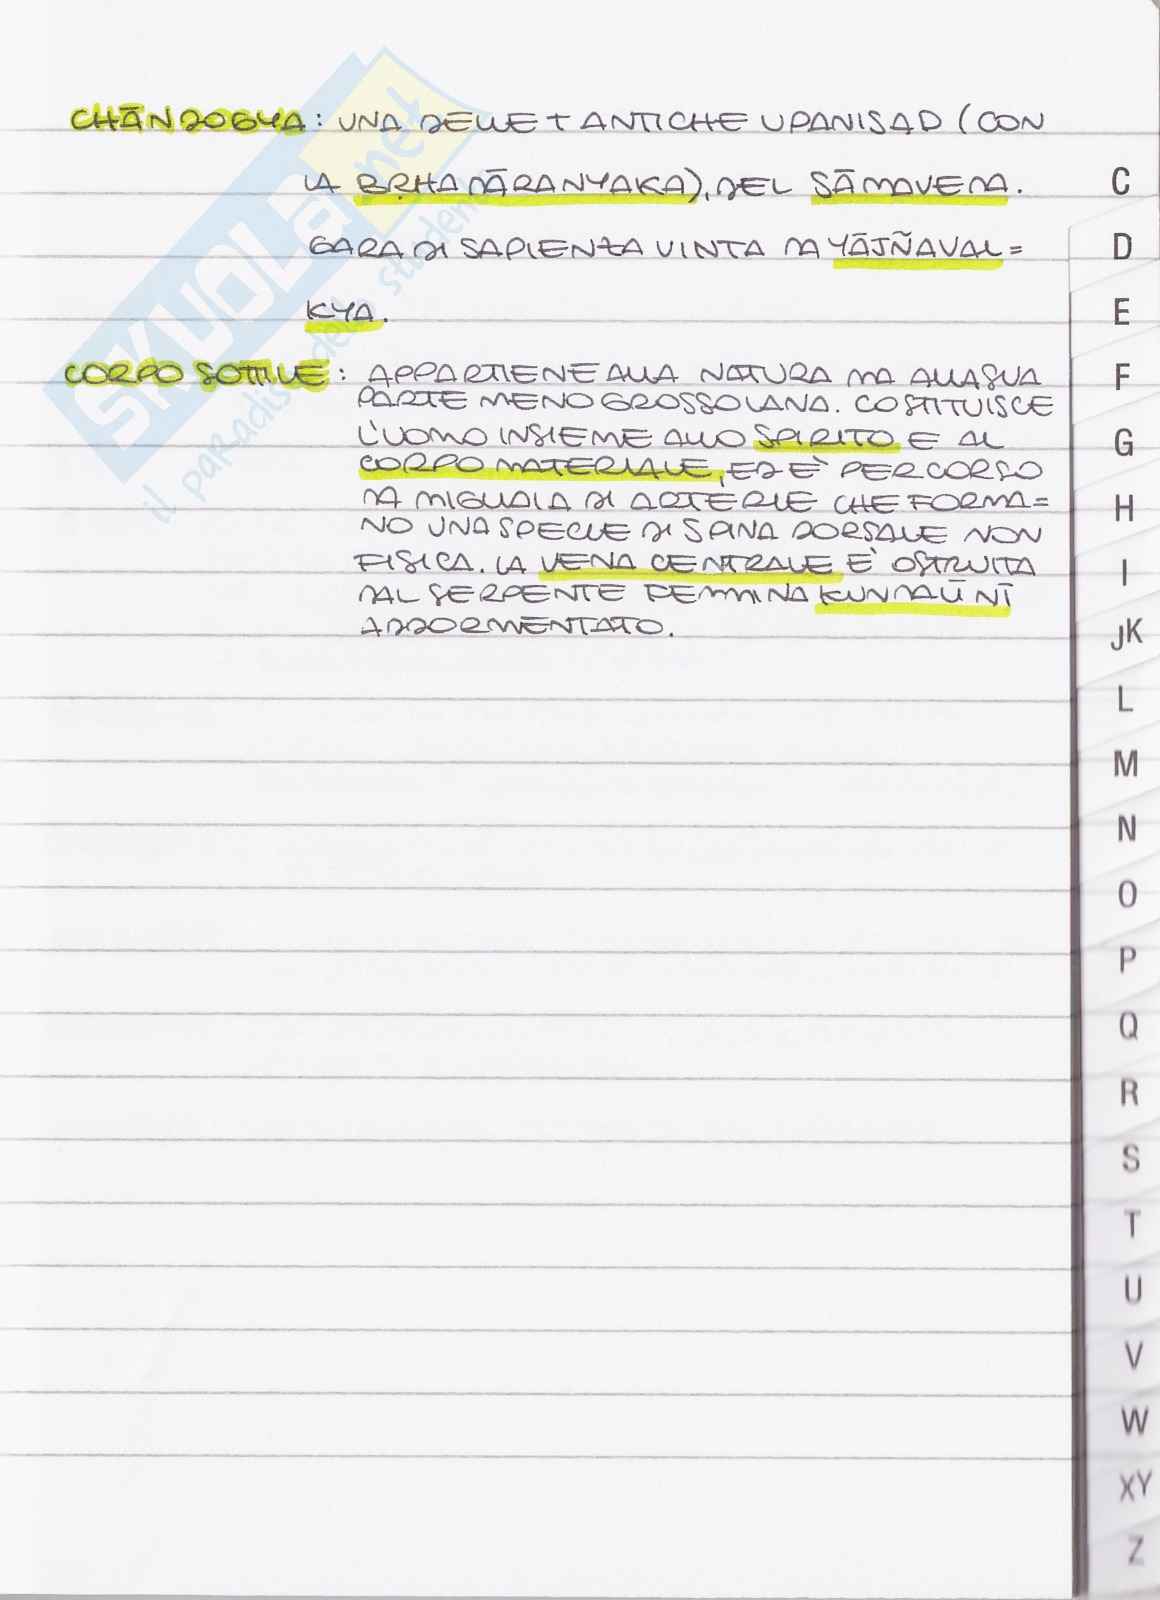 CHĀNDOGYA: UNA DELLE + ANTICHE UPANISAD (CON
LA BRHADĀRANYAKA), DEL SĀMAVEDA.
GARA DI SAPIENZA VINTA DA YĀJÑAVAL=
KYA.
CORPO SOTTILE: APPARTIENE ALLA NATURA MA ALLA SUA
PARTE MENO GROSSOLANA. COSTITUISCE
L'UOMO INSIEME ALLO SPIRITO E AL
CORPO MATERIALE, ED È PERCORSO
DA MIGLIAIA DI ARTERIE CHE FORMA=
NO UNA SPECIE DI SPINA DORSALE NON
FISICA. LA VENA CENTRALE È OSTRUITA
DAL SERPENTE FEMMINA KUNDALINĪ
ADDORMENTATO.
SKUOLA.net
il paradiso dello studente
C
D
E
F
G
H
I
JK
L
M
N
O
P
Q
R
S
T
U
V
W
XY
Z